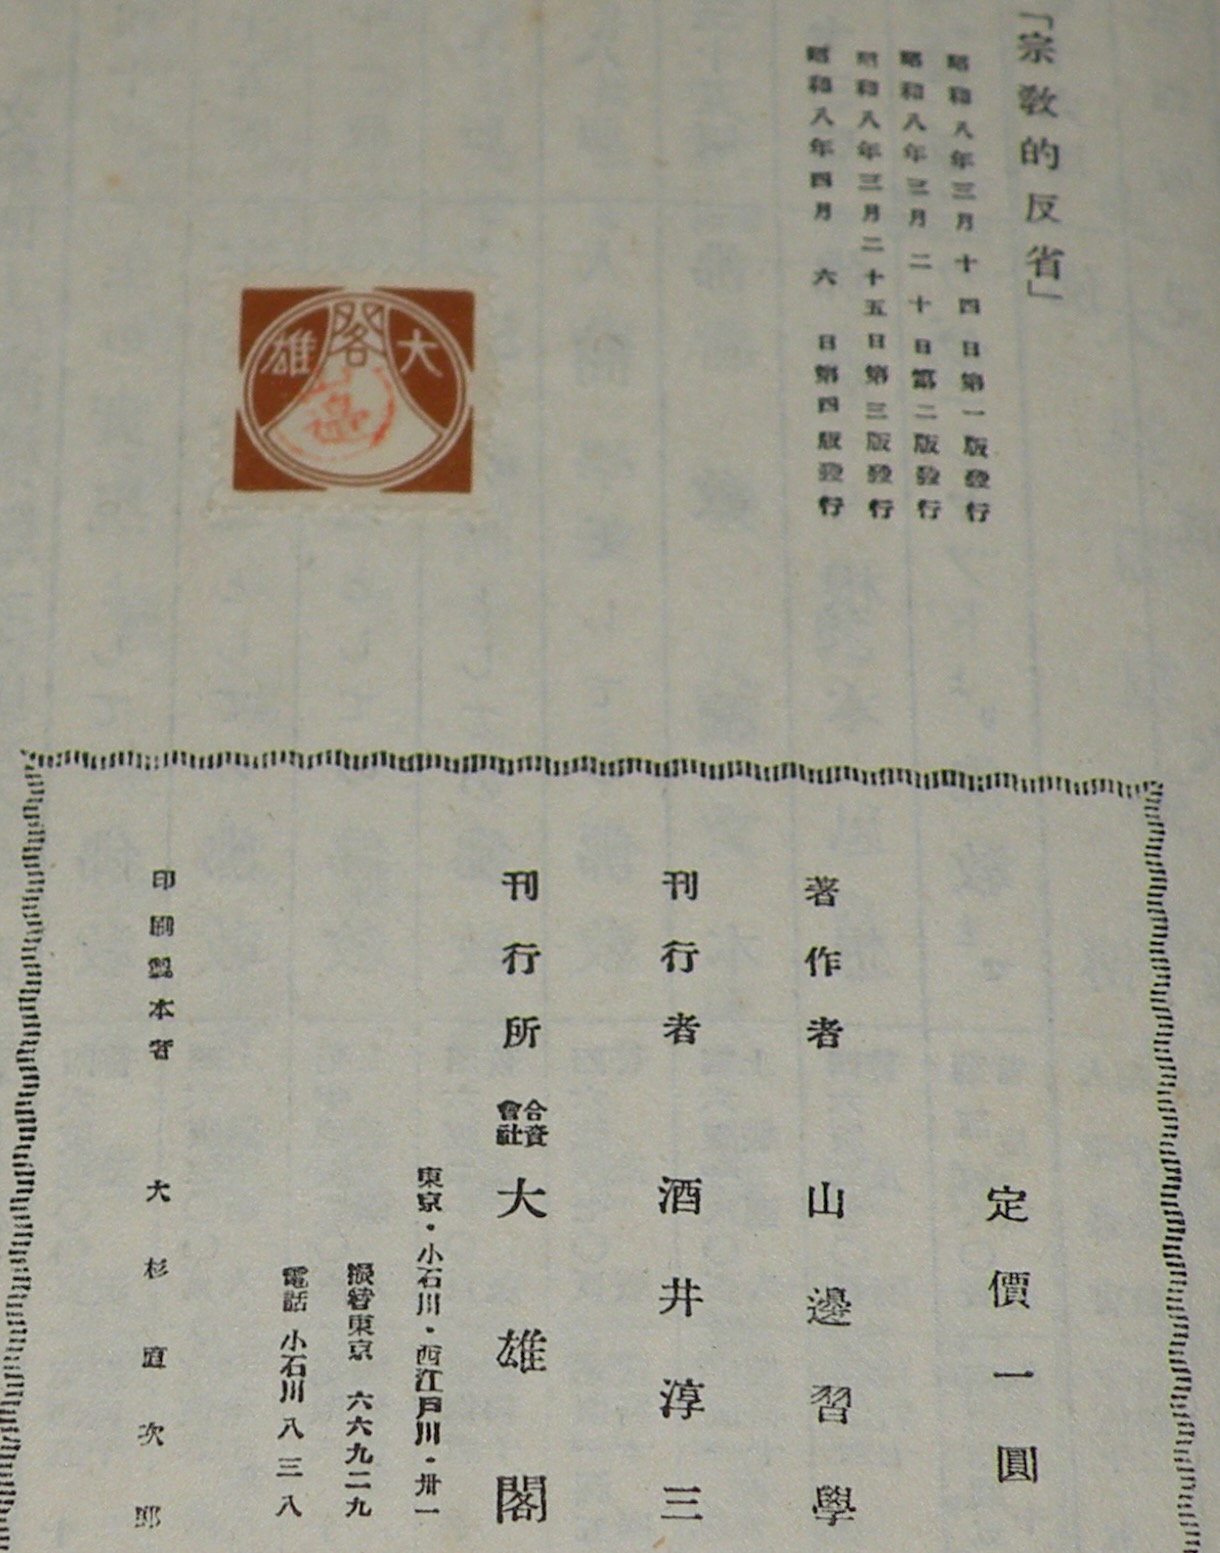 「宗敎的反省」
昭和八年三月十四日第一版發行
昭和八年三月二十日第二版發行
昭和八年三月二十五日第三版發行
昭和八年四月六日第四版發行
大閣雄
定價一圓
著作者 山邊習學
刊行者 酒井淳三
刊行所 合資會社 大雄閣
東京・小石川・西江戸川・卅一
振替東京 六六九二九
電話 小石川 八三八
印刷製本者 大杉直次郎